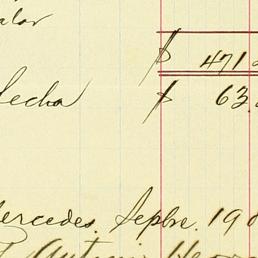 alor
$ 471
fecha $ 63.
ercedes, Sepbre. 190
Antonio